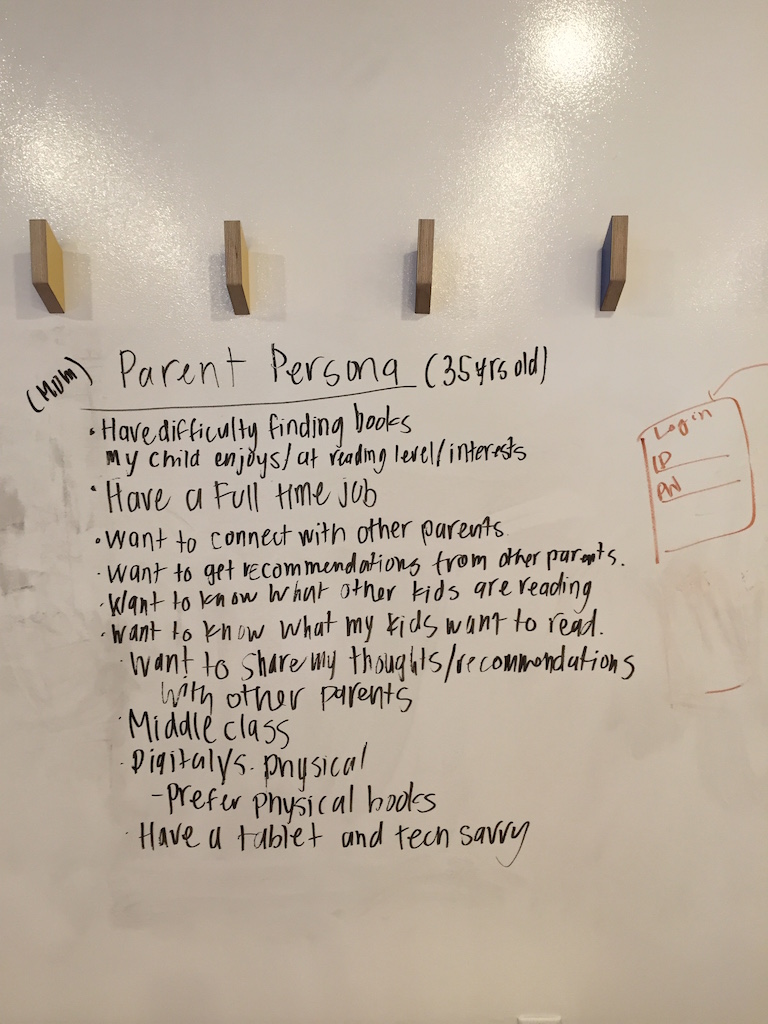 (MOM) Parent Persona (35 yrs old)
• Have difficulty finding books
my child enjoys/at reading level/interests
• Have a Full time job
• Want to connect with other parents
• Want to get recommendations from other parents.
• Want to know what other kids are reading
• Want to know what my kids want to read.
• Want to share my thoughts/recommendations
with other parents
• Middle class
• Digital vs. physical
- Prefer physical books
• Have a tablet and tech savvy
Login
ID
PW